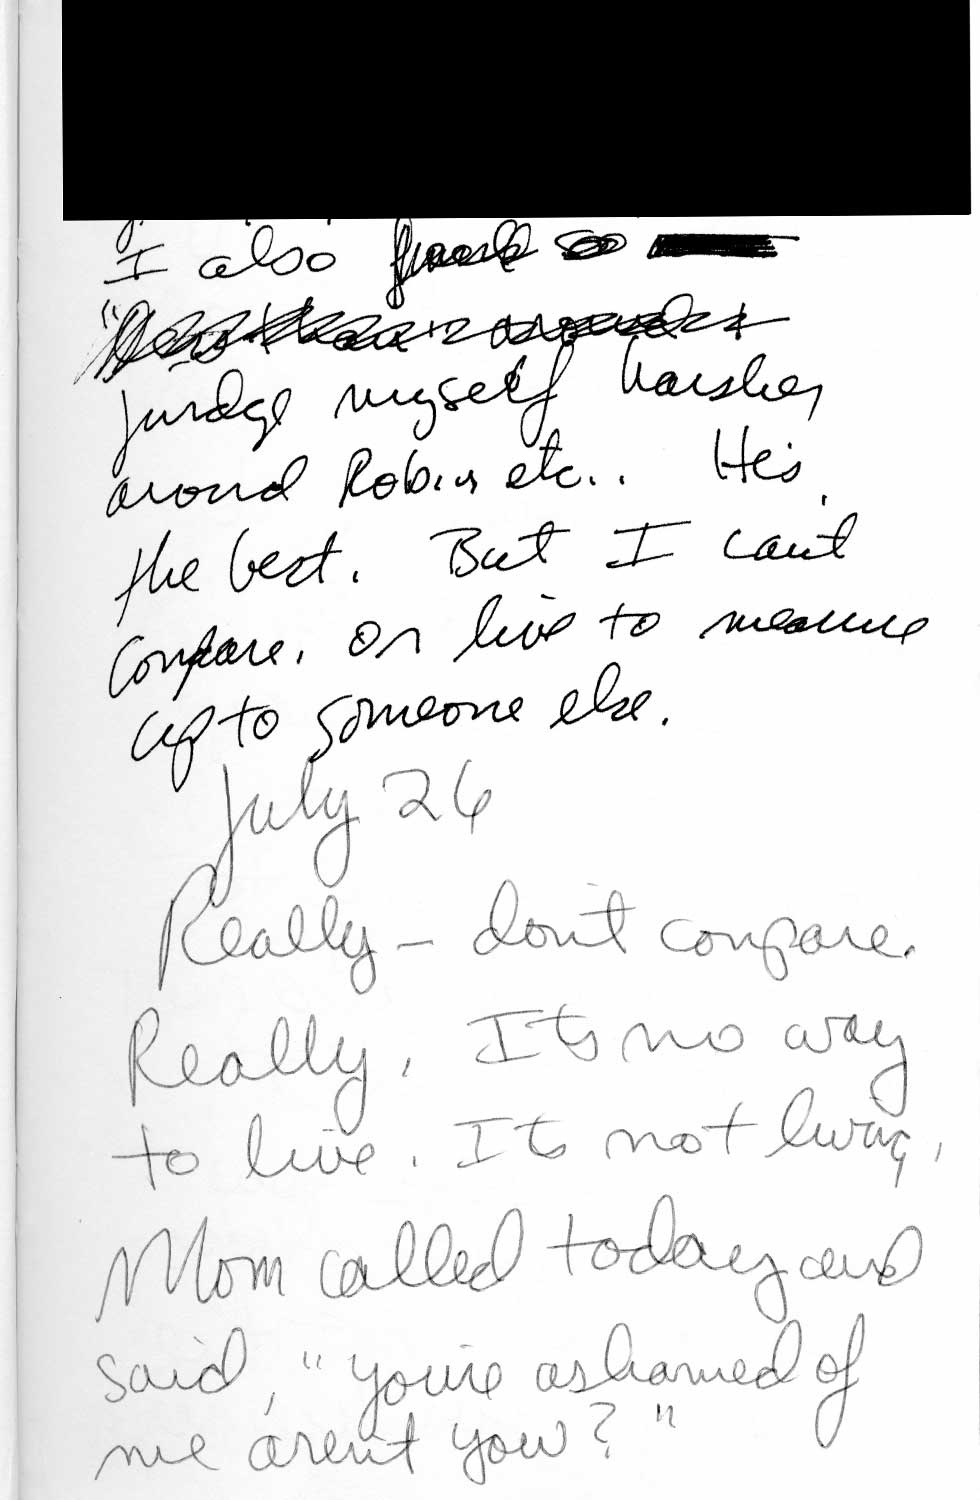 I also
judge myself harsher
around Robin etc.. He's
the best. But I can't
compare, or live to measure
up to someone else.
July 26
Really – don't compare.
Really. Its no way
to live. Its not living.
Mom called today and
said, "you're ashamed of
me aren't you?"